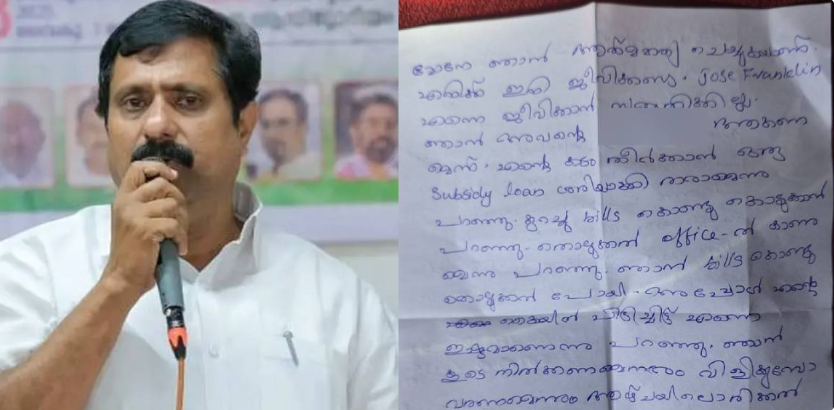 മോനേ ഞാൻ ആത്മഹത്യ ചെയ്യുകയാണ്.
എനിക്ക് ഇനി ജീവിക്കണ്ട. Jose Franklin
എന്നെ ജീവിക്കാൻ സമ്മതിക്കില്ല.
ഞാൻ അവന്റെ
മെന്ന്. എന്റെ കടം തീർക്കാൻ ഒരു
Subsidy loan ശരിയാക്കി തരാമെന്നു
പറഞ്ഞു. കുറച്ച് bills കൊണ്ടു കൊടുക്കാൻ
പറഞ്ഞു. office-ൽ കാണു
മെന്നു പറഞ്ഞു. ഞാൻ bills കൊണ്ടു
കൊടുക്കാൻ പോയി. അപ്പോൾ എന്റെ
കൈയിൽ പിടിച്ചിട്ട് എന്നെ
ഇഷ്ടമാണെന്നു പറഞ്ഞു. ഞാൻ
കൂടെ നിൽക്കണമെന്നും വിളിക്കുമ്പോ
വരണമെന്നും ആഴ്ചയിലൊരിക്കൽ